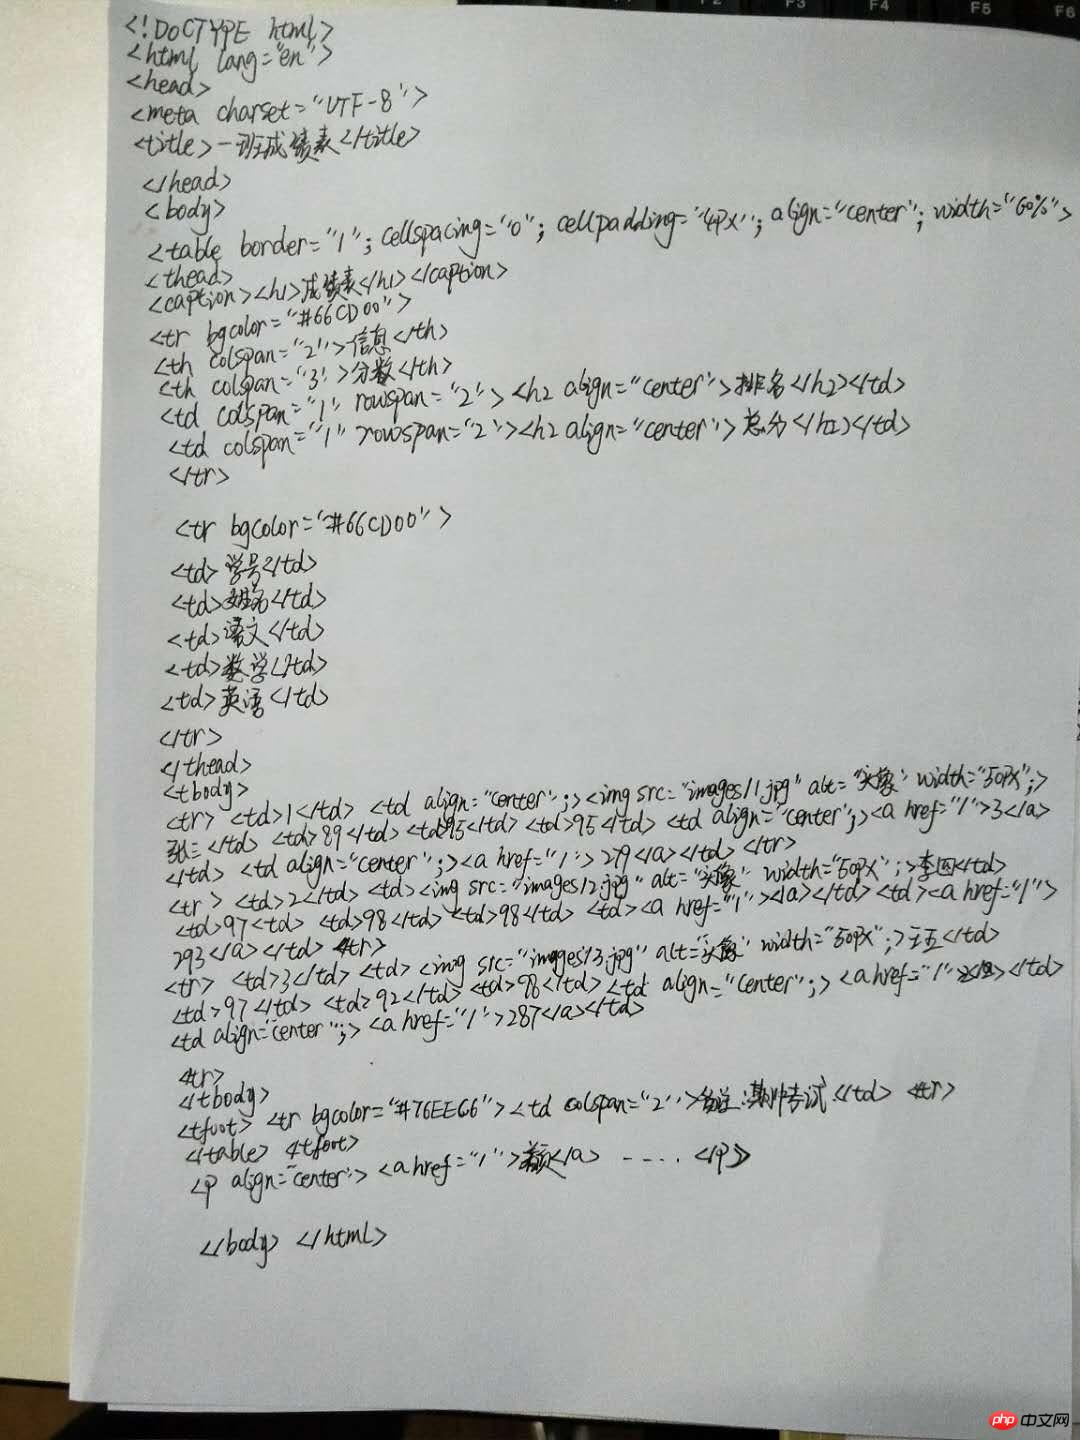 F3 F4 F5 F6
<!DOCTYPE html>
<html lang="en">
<head>
<meta charset="UTF-8">
<title>一班成绩表</title>
</head>
<body>
<table border="1"; cellspacing="0"; cellpadding="4px"; align="center"; width="60%">
<thead>
<caption><h1>成绩表</h1></caption>
<tr bgcolor="#66CD00">
<th colspan="2">信息</th>
<th colspan="3">分数</th>
<td colspan="1" rowspan="2"><h2 align="center">排名</h2></td>
<td colspan="1" rowspan="2"><h2 align="center">总分</h2></td>
</tr>
<tr bgcolor="#66CD00">
<td>学号</td>
<td>姓名</td>
<td>语文</td>
<td>数学</td>
<td>英语</td>
</tr>
</thead>
<tbody>
<tr> <td>1</td> <td align="center";><img src="images/1.jpg" alt="头像" width="50px";>
张三</td> <td>89</td> <td>95</td> <td>95</td> <td align="center";><a href="1">3</a>
</td> <td align="center";><a href="1">279</a></td> </tr>
<tr> <td>2</td> <td><img src="images/2.jpg" alt="头像" width="50px";>李四</td>
<td>97<td> <td>98</td> <td>98</td> <td><a href="1"></a></td> <td><a href="1">
293</a></td> </tr>
<tr> <td>3</td> <td> <img src="images/3.jpg" alt="头像" width="50px";>王五</td>
<td>97</td> <td>92</td> <td>98</td> <td align="center";> <a href="1"></td>
<td align="center";> <a href="1">287</a></td>
</tr>
</tbody>
<tfoot> <tr bgcolor="#76EE66"><td colspan="2">备注:期中考试</td> </tr>
</table> </tfoot>
<p align="center"> <a href="1"></a> ..... </p>
</body> </html>
php 中文网